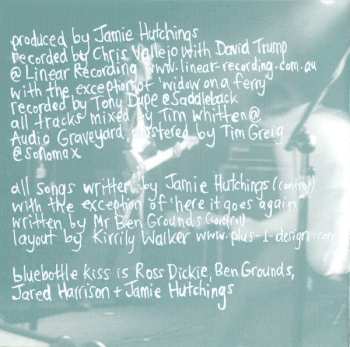 produced by Jamie Hutchings
recorded by Chris Vallejo with David Trump
@ Linear Recording www.linear-recording.com.au
with the exception of 'widow on a ferry'
recorded by Tony Dupe @ Saddleback
all tracks mixed by Tim Whitten @
Audio Graveyard, mastered by Tim Greig
@ sonomax
all songs written by Jamie Hutchings (control)
with the exception of 'here it goes again'
written by Mr Ben Grounds (control)
layout by Kirrily Walker www.plus-1-design.com
bluebottle kiss is Ross Dickie, Ben Grounds,
Jared Harrison + Jamie Hutchings